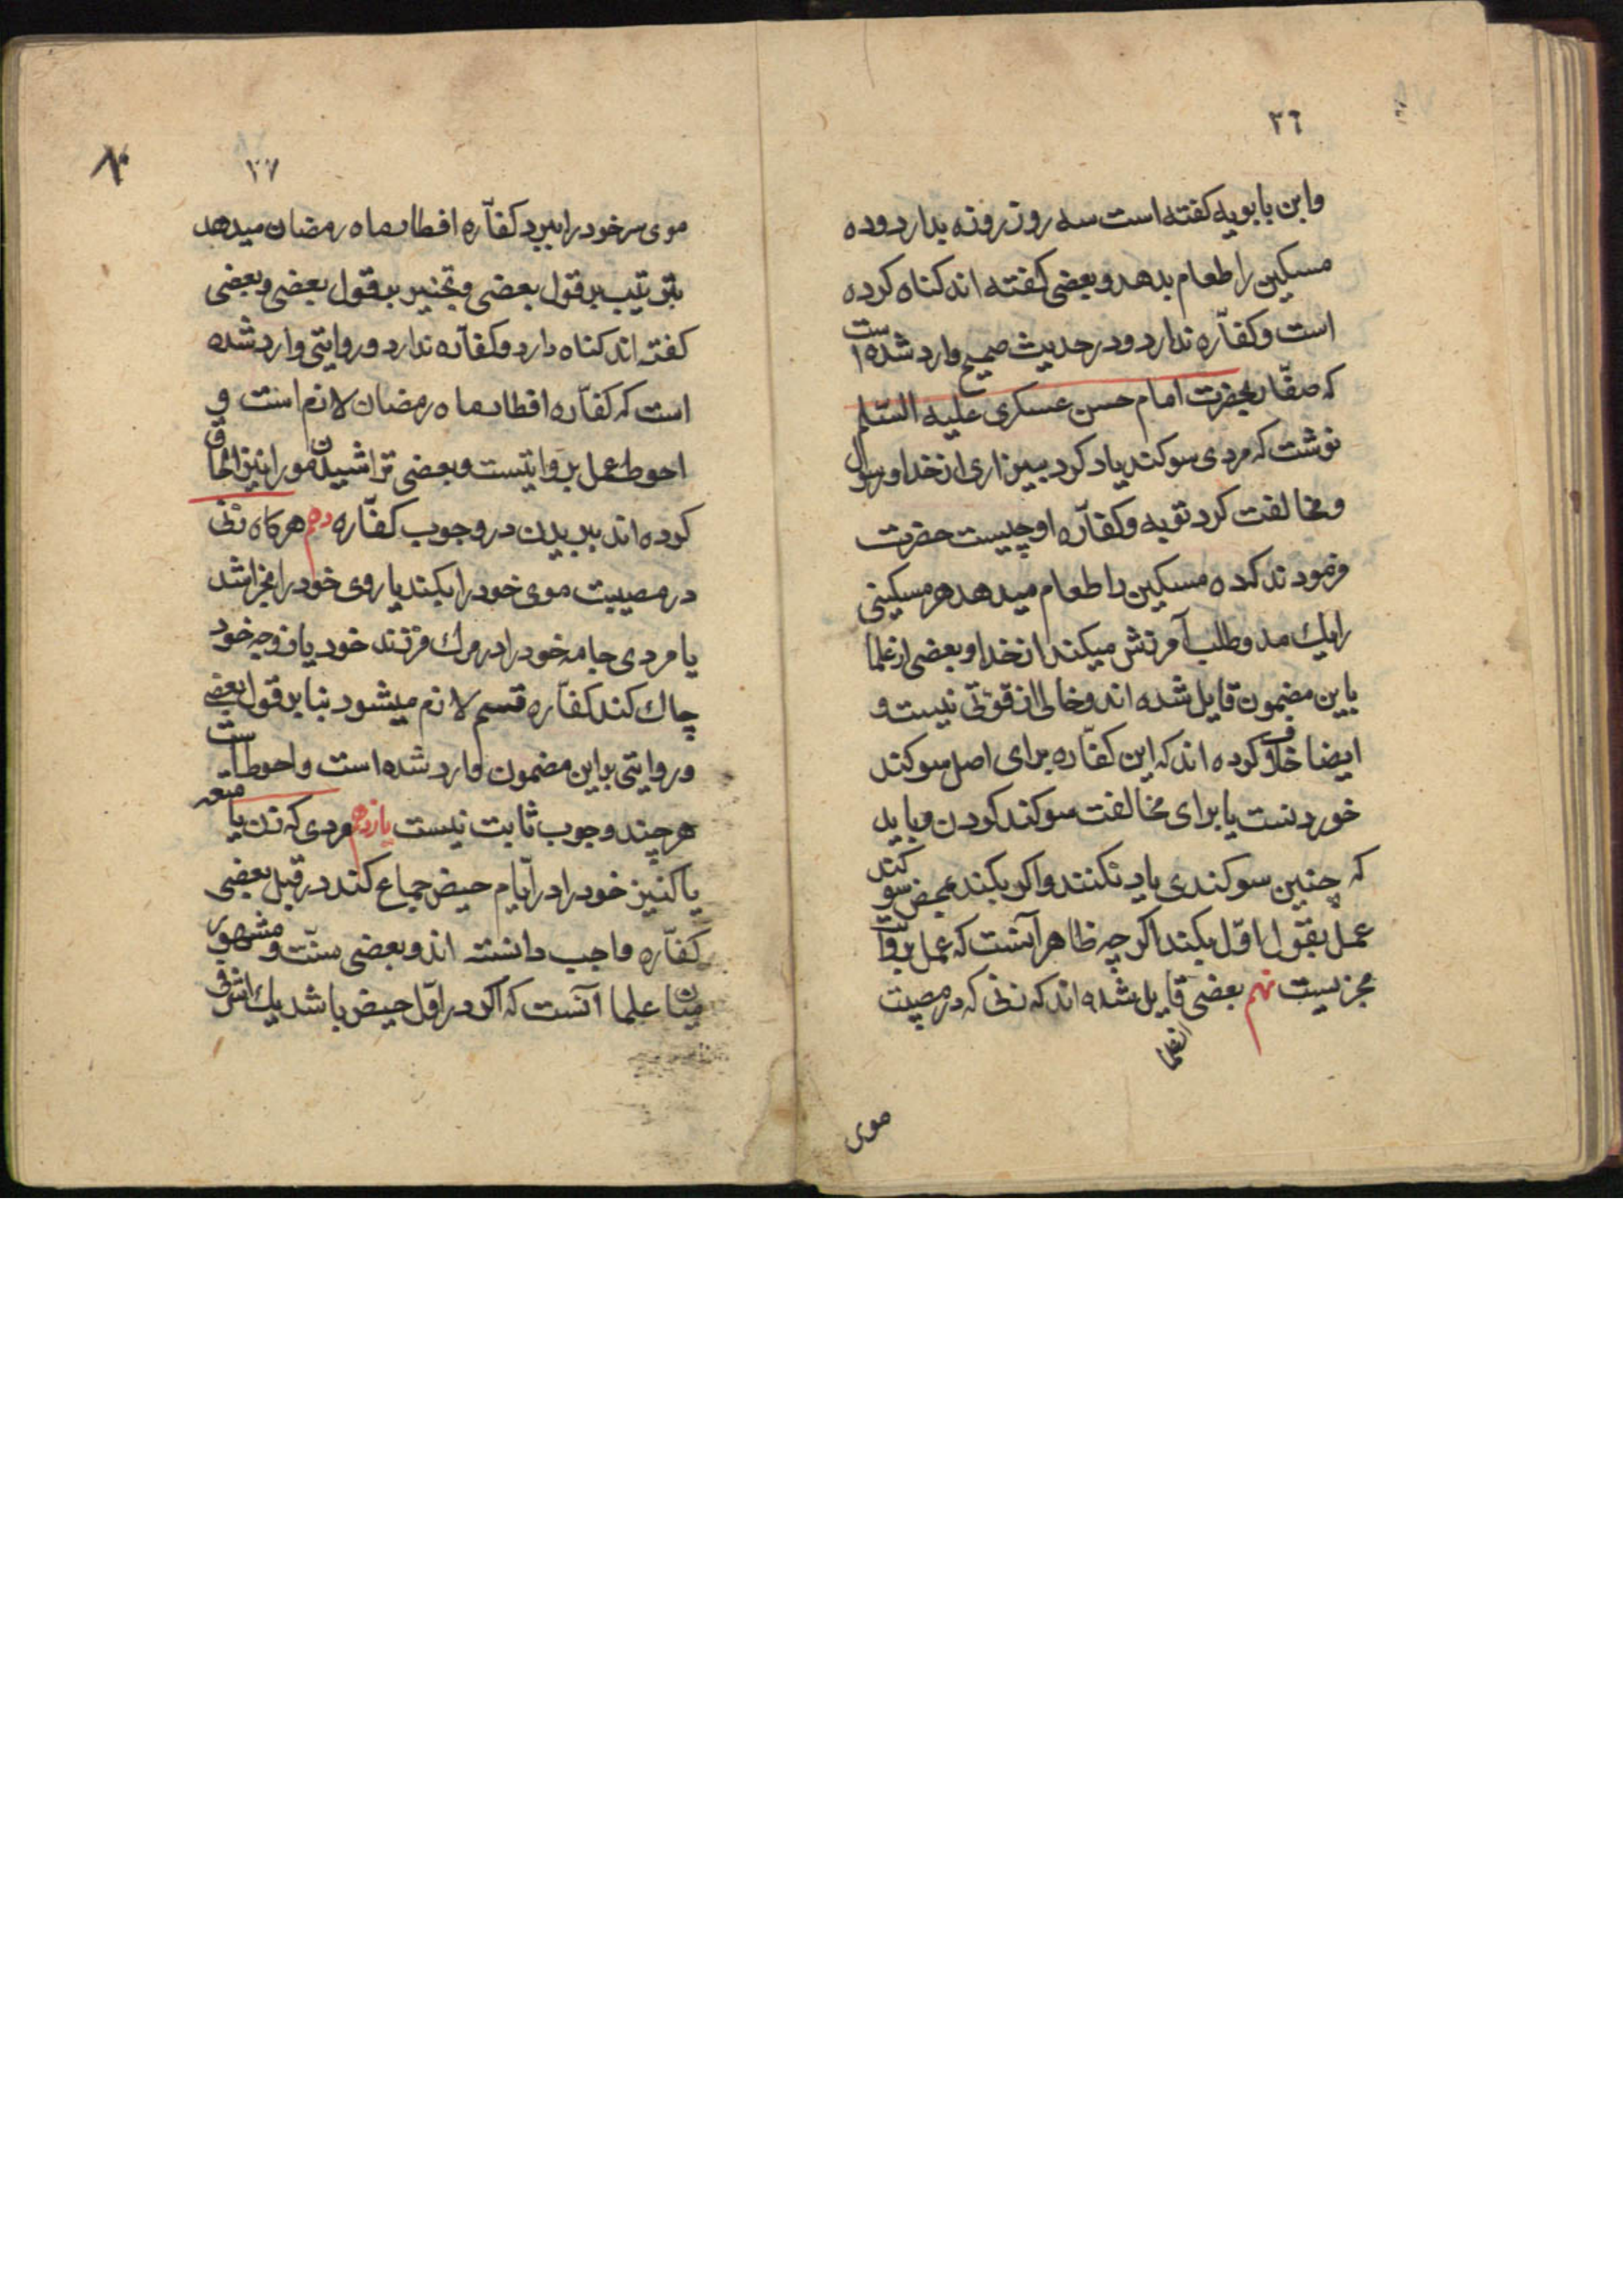 ٣٦
وابن بابویه کفته است سه روز روزه بدارد وده
مسکین را طعام بدهد وبعضی کفته اند کناه کرده
است وکفّاره ندارد ودر حدیث صحیح وارد شده است
که صفّار بحضرت امام حسن عسکری علیه السّلم
نوشت که مردی سوکند یاد کرد ببیزاری از خدا ورسول
ومخالفت کرد توبه وکفّاره او چیست حضرت
فرمودند که ده مسکین را طعام میدهد هر مسکینی
را یك مد وطلب آمرزش میکند از خدا وبعضی از علما
باین مضمون قایل شده اند وخالی از قوّتی نیست و
ایضا خلاف کرده اند که این کفّاره برای اصل سوکند
خوردنست یا برای مخالفت سوکند کردن وباید
که چنین سوکندی یاد نکنند واکر بکند بمحض سوکند
عمل بقول اوّل بکند اکر چه ظاهر آنست که عمل بروایت
مجزیست نهم بعضی قایل شده اند که زنی که در مصیبت
از علما
موی
٣٧
موی سر خود را ببرد کفّاره افطار ماه رمضان میدهد
بترتیب بر قول بعضی وتخییر بر قول بعضی وبعضی
کفته اند کناه دارد وکفّاره ندارد وروایتی وارد شده
است که کفّاره افطار ماه رمضان لازم است و
احوط عمل بروایتست وبعضی تراشیدن مو را نیز الحاق
کرده اند ببریدن در وجوب کفّاره دهم هرکاه زنی
در مصیبت موی خود را بکند یا روی خود را بخراشد
یا مردی جامه خود را در مرك فرزند خود یا زوجه خود
چاك کند کفّاره قسم لازم میشود بنا بر قول بعضی
وروایتی بر این مضمون وارد شده است واحوط است
هر چند وجوب ثابت نیست یازدهم مردی که زن یا متعه
یا کنیز خود را در ایّام حیض جماع کند در قبل بعضی
کفّاره واجب دانسته اند وبعضی سنّت ومشهور
میان علما آنست که اکر در اوّل حیض باشد یك اشرفی